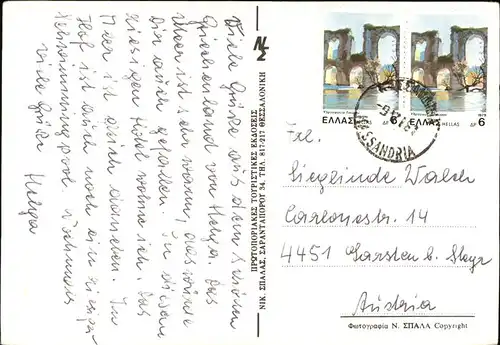 Viele Grüße aus dem schönen
Griechenland von Helga. Das
Wetter ist sehr warm, das würde
Dir auch gefallen. In diesem
riesigen Hotel wohne ich. Das
Meer ist gleich daneben. Im
Hof ist auch noch ein riesiger
Schwimmingpool. Nochmals
viele Grüße Helga
ΠΡΩΤΟΠΟΡΙΑΚΕΣ ΤΟΥΡΙΣΤΙΚΕΣ ΕΚΔΟΣΕΙΣ
ΝΙΚ. ΣΠΑΛΑΣ, ΣΑΡΑΝΤΑΠΟΡΟΥ 34, ΤΗΛ. 817-217 ΘΕΣΣΑΛΟΝΙΚΗ
ΕΛΛΑΣ HELLAS ΔΡ 6
ΕΛΛΑΣ HELLAS ΔΡ 6
Frl.
Sieglinde Walch
Carlonestr. 14
4451 Garsten b/ Steyr
Austria
Φωτογραφία Ν. ΣΠΑΛΑ Copyright